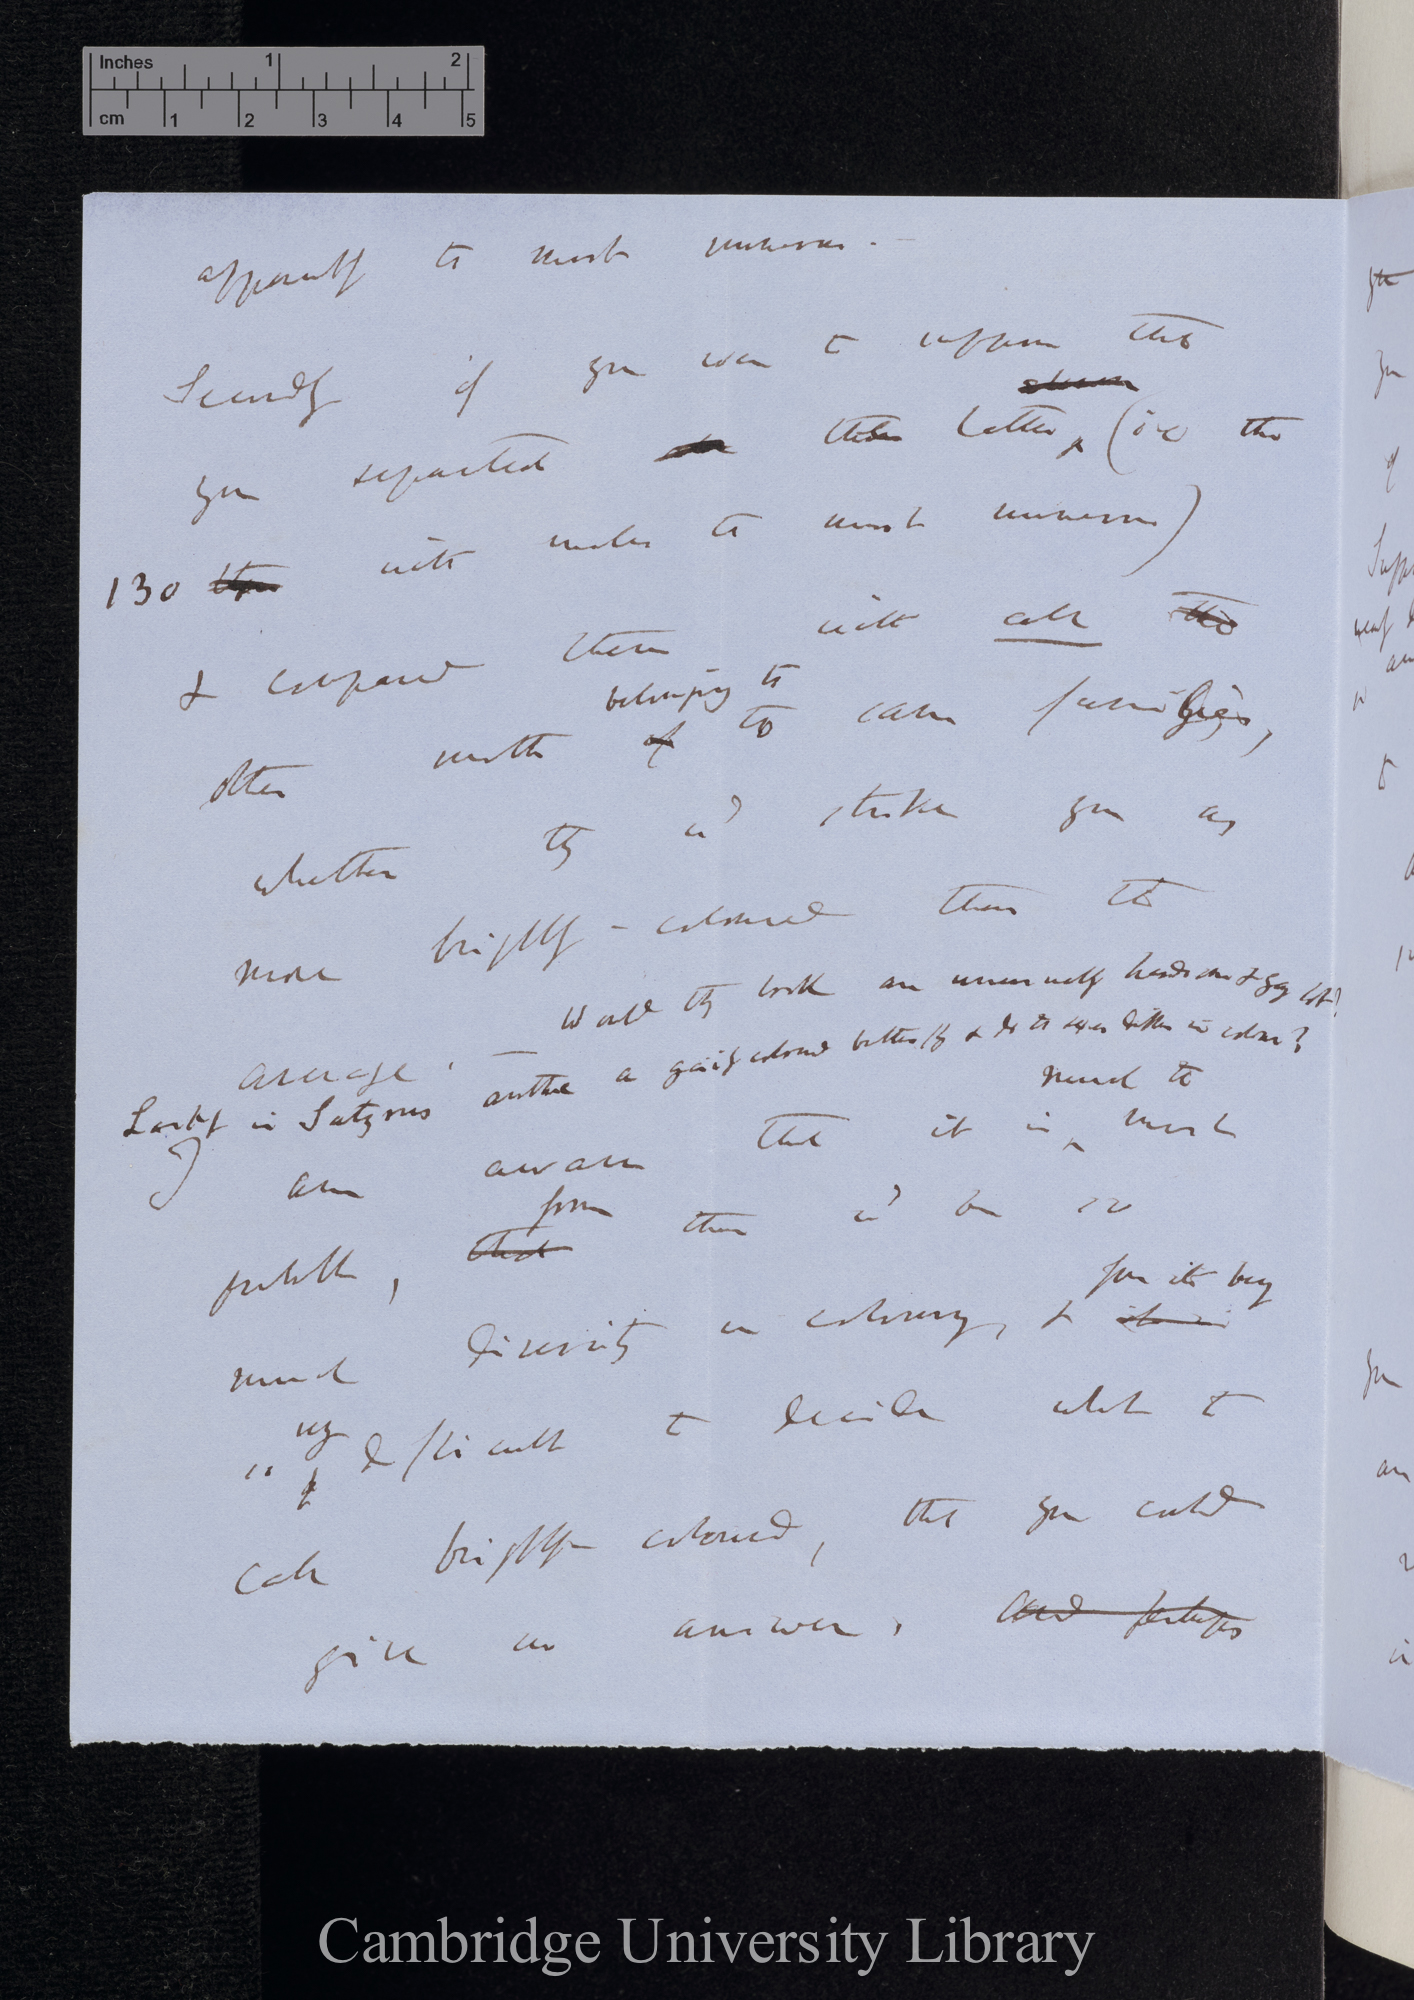 Inches 1 2
cm 1 2 3 4 5
apparently the most numerous.—
Secondly if you were to suppose that
you separated these latter, (ie the
130 with males the most numerous)
& compared them with all
other moths belonging to the same families,
whether they wd strike you as
more brightly-coloured than the
average. — Would they look an unusually handsome & gay lot?
Lastly in Satyrus another a gaily coloured butterfly & do the sexes differ in colour?
I am aware that it is much the most
probable, from there wd be so
much diversity in colouring, & for its being
so very difficult to decide what to
call brightly-coloured, that you could
give no answer, and perhaps
Cambridge University Library